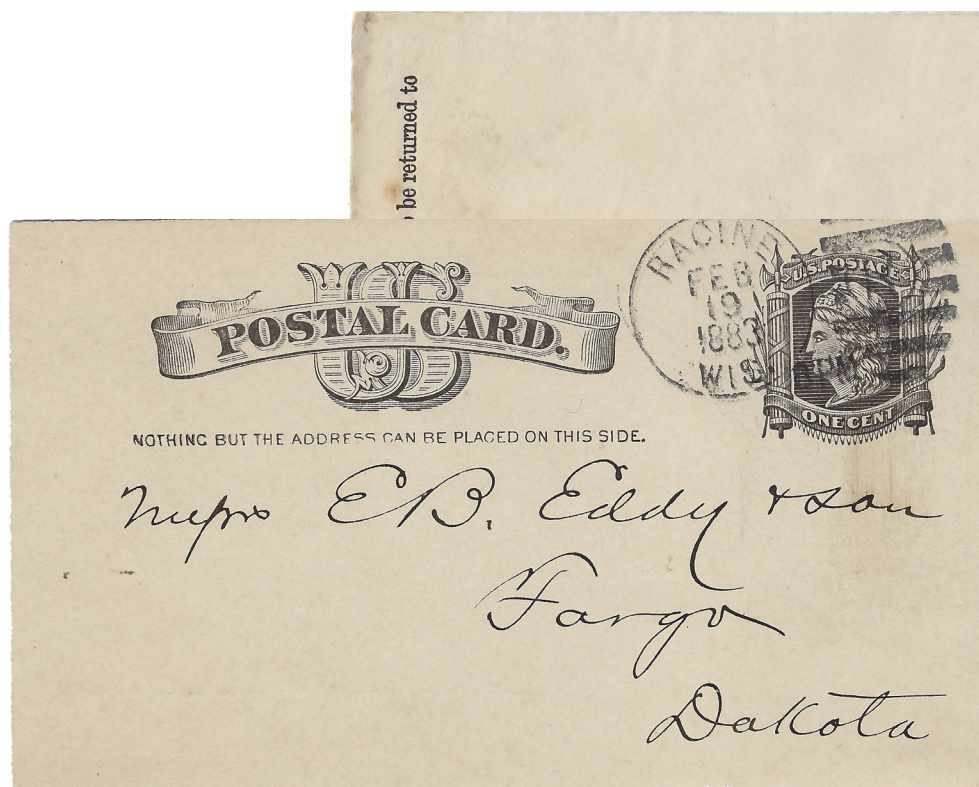 be returned to
RACINE
FEB
19
1883
WIS
U.S. POSTAGE
US
POSTAL CARD.
ONE CENT
NOTHING BUT THE ADDRESS CAN BE PLACED ON THIS SIDE.
Messrs E B. Eddy & Son
Fargo
Dakota